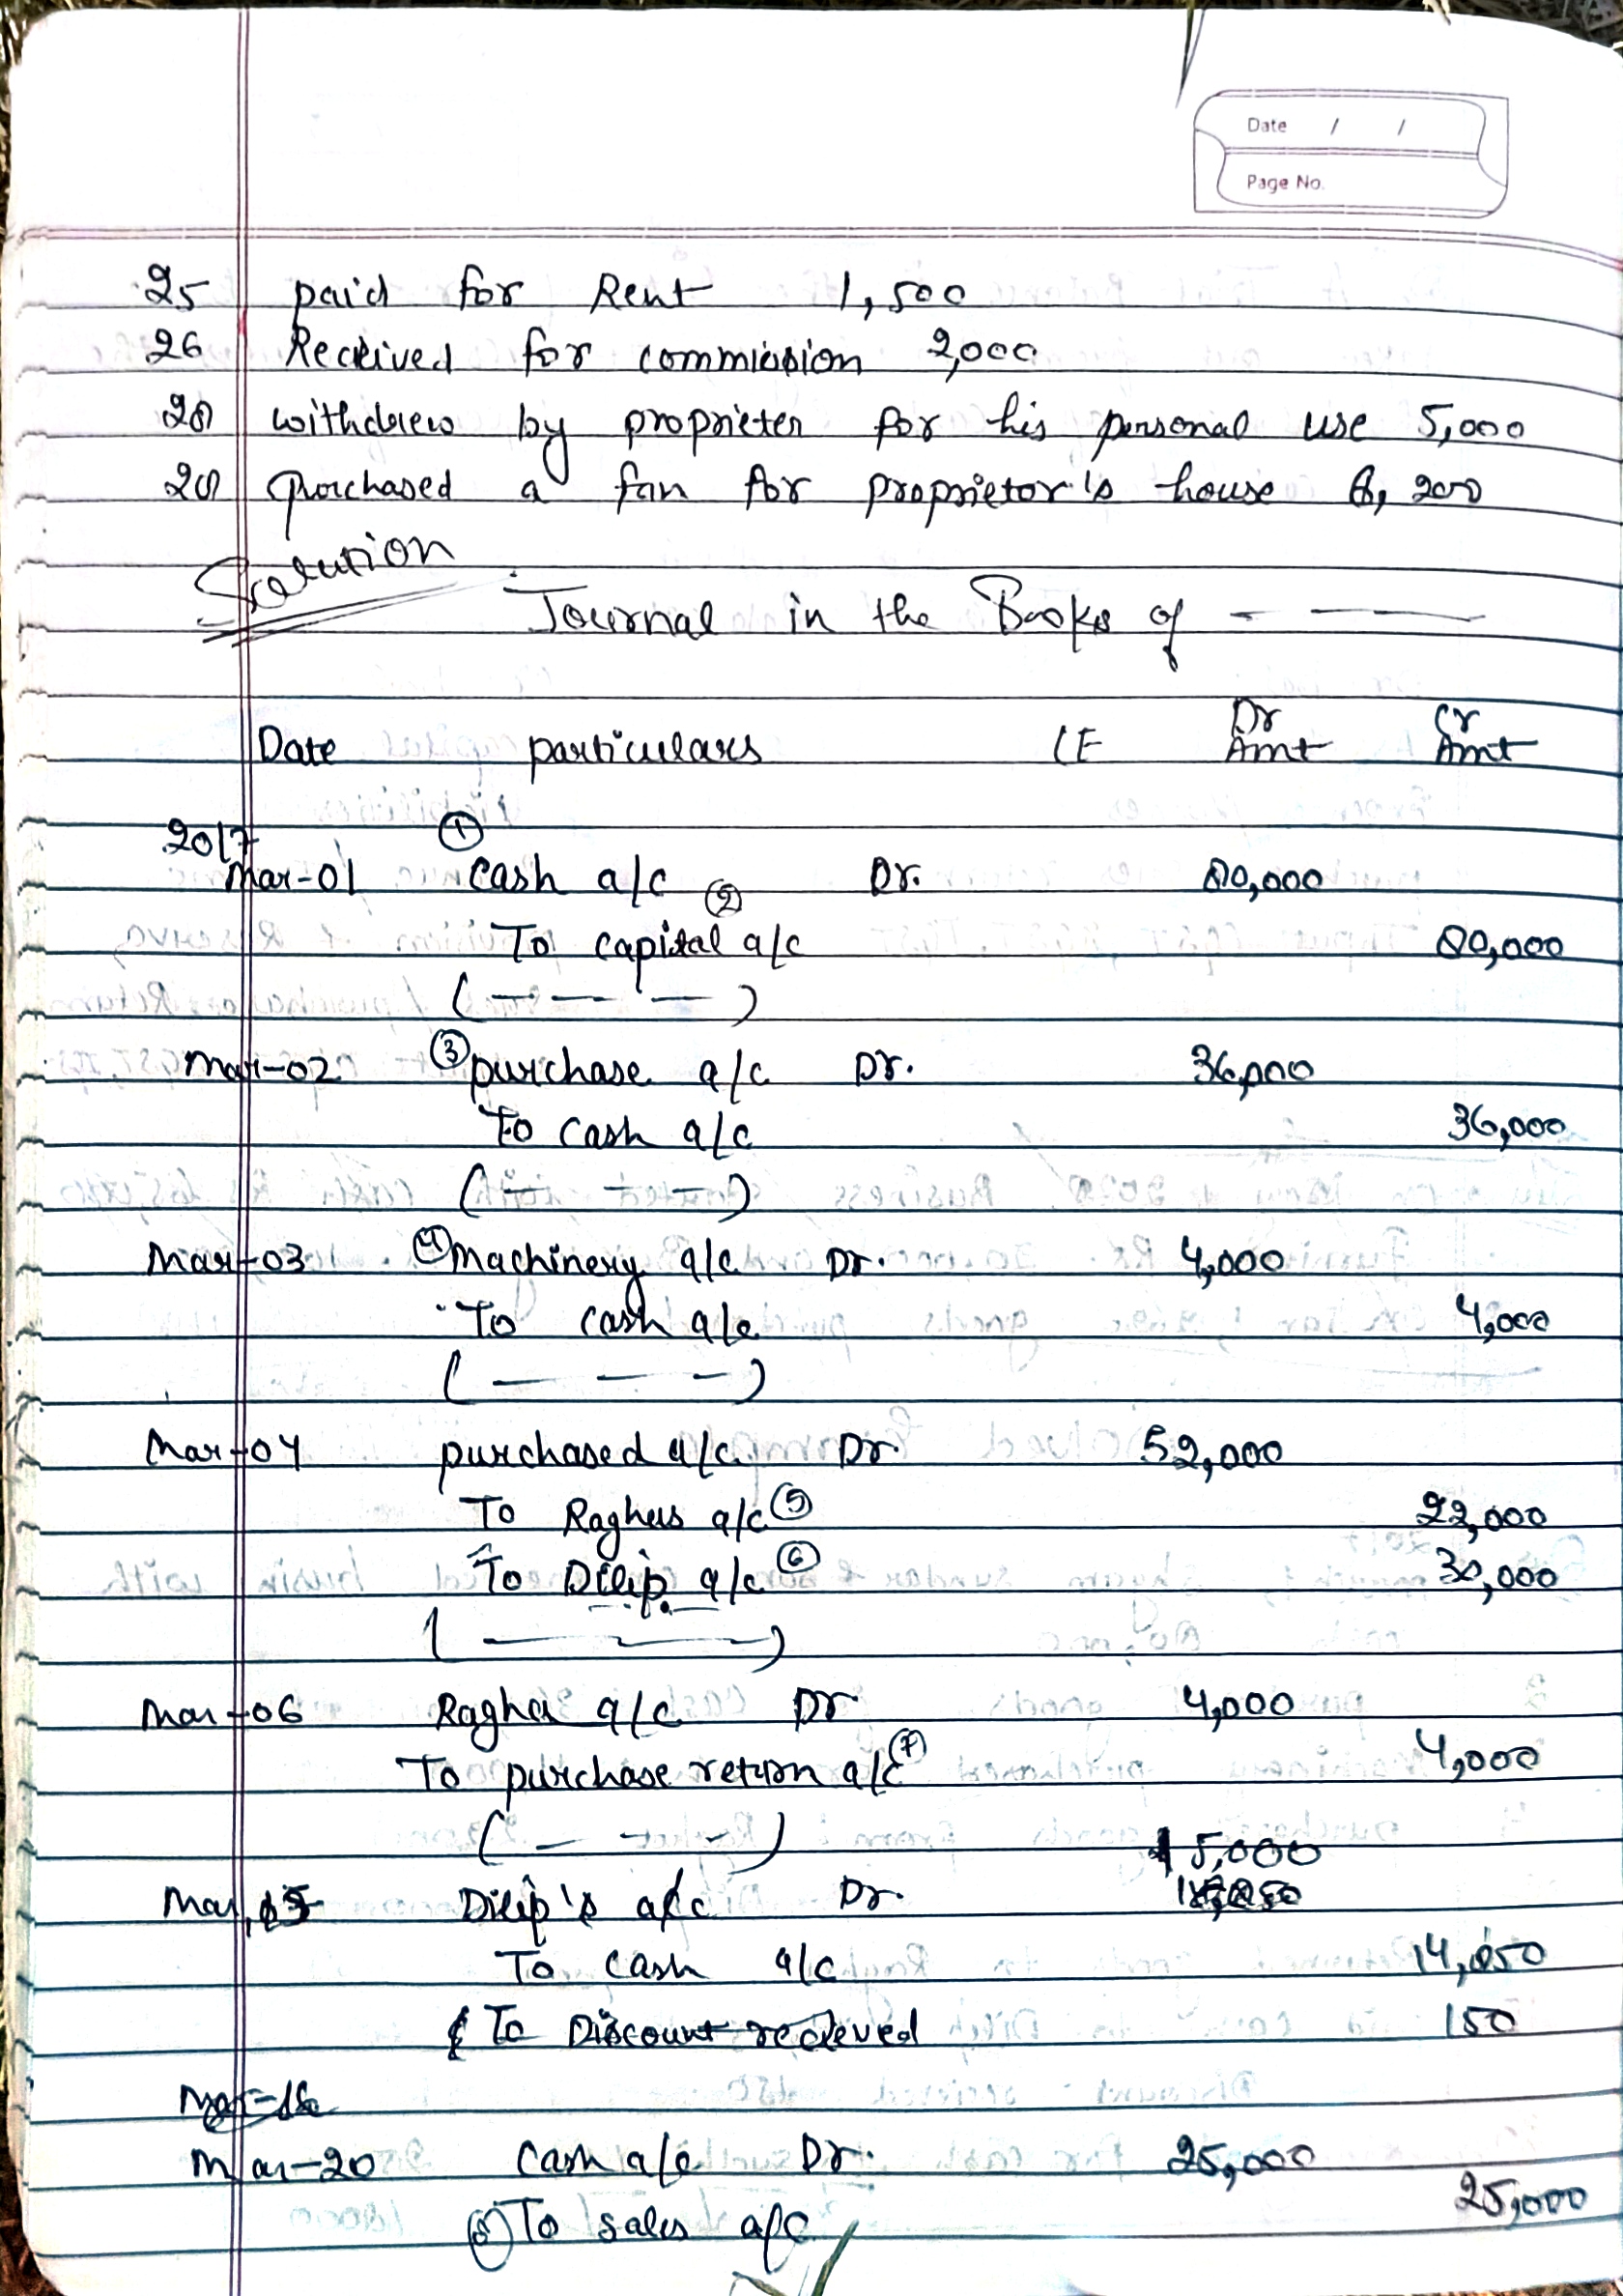 Date / /
Page No.
25 paid for Rent 1,500
26 Received for commission 2,000
28 withdrew by proprieter for his personal use 5,000
28 purchased a fan for proprietor's house 8,200
Solution
Journal in the Books of - —
Date particulars LF Dr Amt Cr Amt
2017 ①
Mar-01 Cash a/c Dr. 80,000
② To capital a/c 80,000
( — — — )
Mar-02 ③ purchase a/c Dr. 36,000
To cash a/c 36,000
( — — — )
Mar-03 ④ Machinery a/c Dr. 4,000
To cash a/c 4,000
( — — — )
Mar-04 purchased a/c Dr. 52,000
To Raghus a/c ⑤ 22,000
To Dilip a/c ⑥ 30,000
( — — — )
Mar-06 Raghu a/c Dr 4,000
To purchase return a/c ⑦ 4,000
( — — — )
15,000
Mar, 15 Dilip's a/c Dr.
To cash a/c 14,850
& To Discount recieved 150
Mar-16
Mar-20 Cash a/c Dr. 25,000
⑧ To sales a/c 25,000